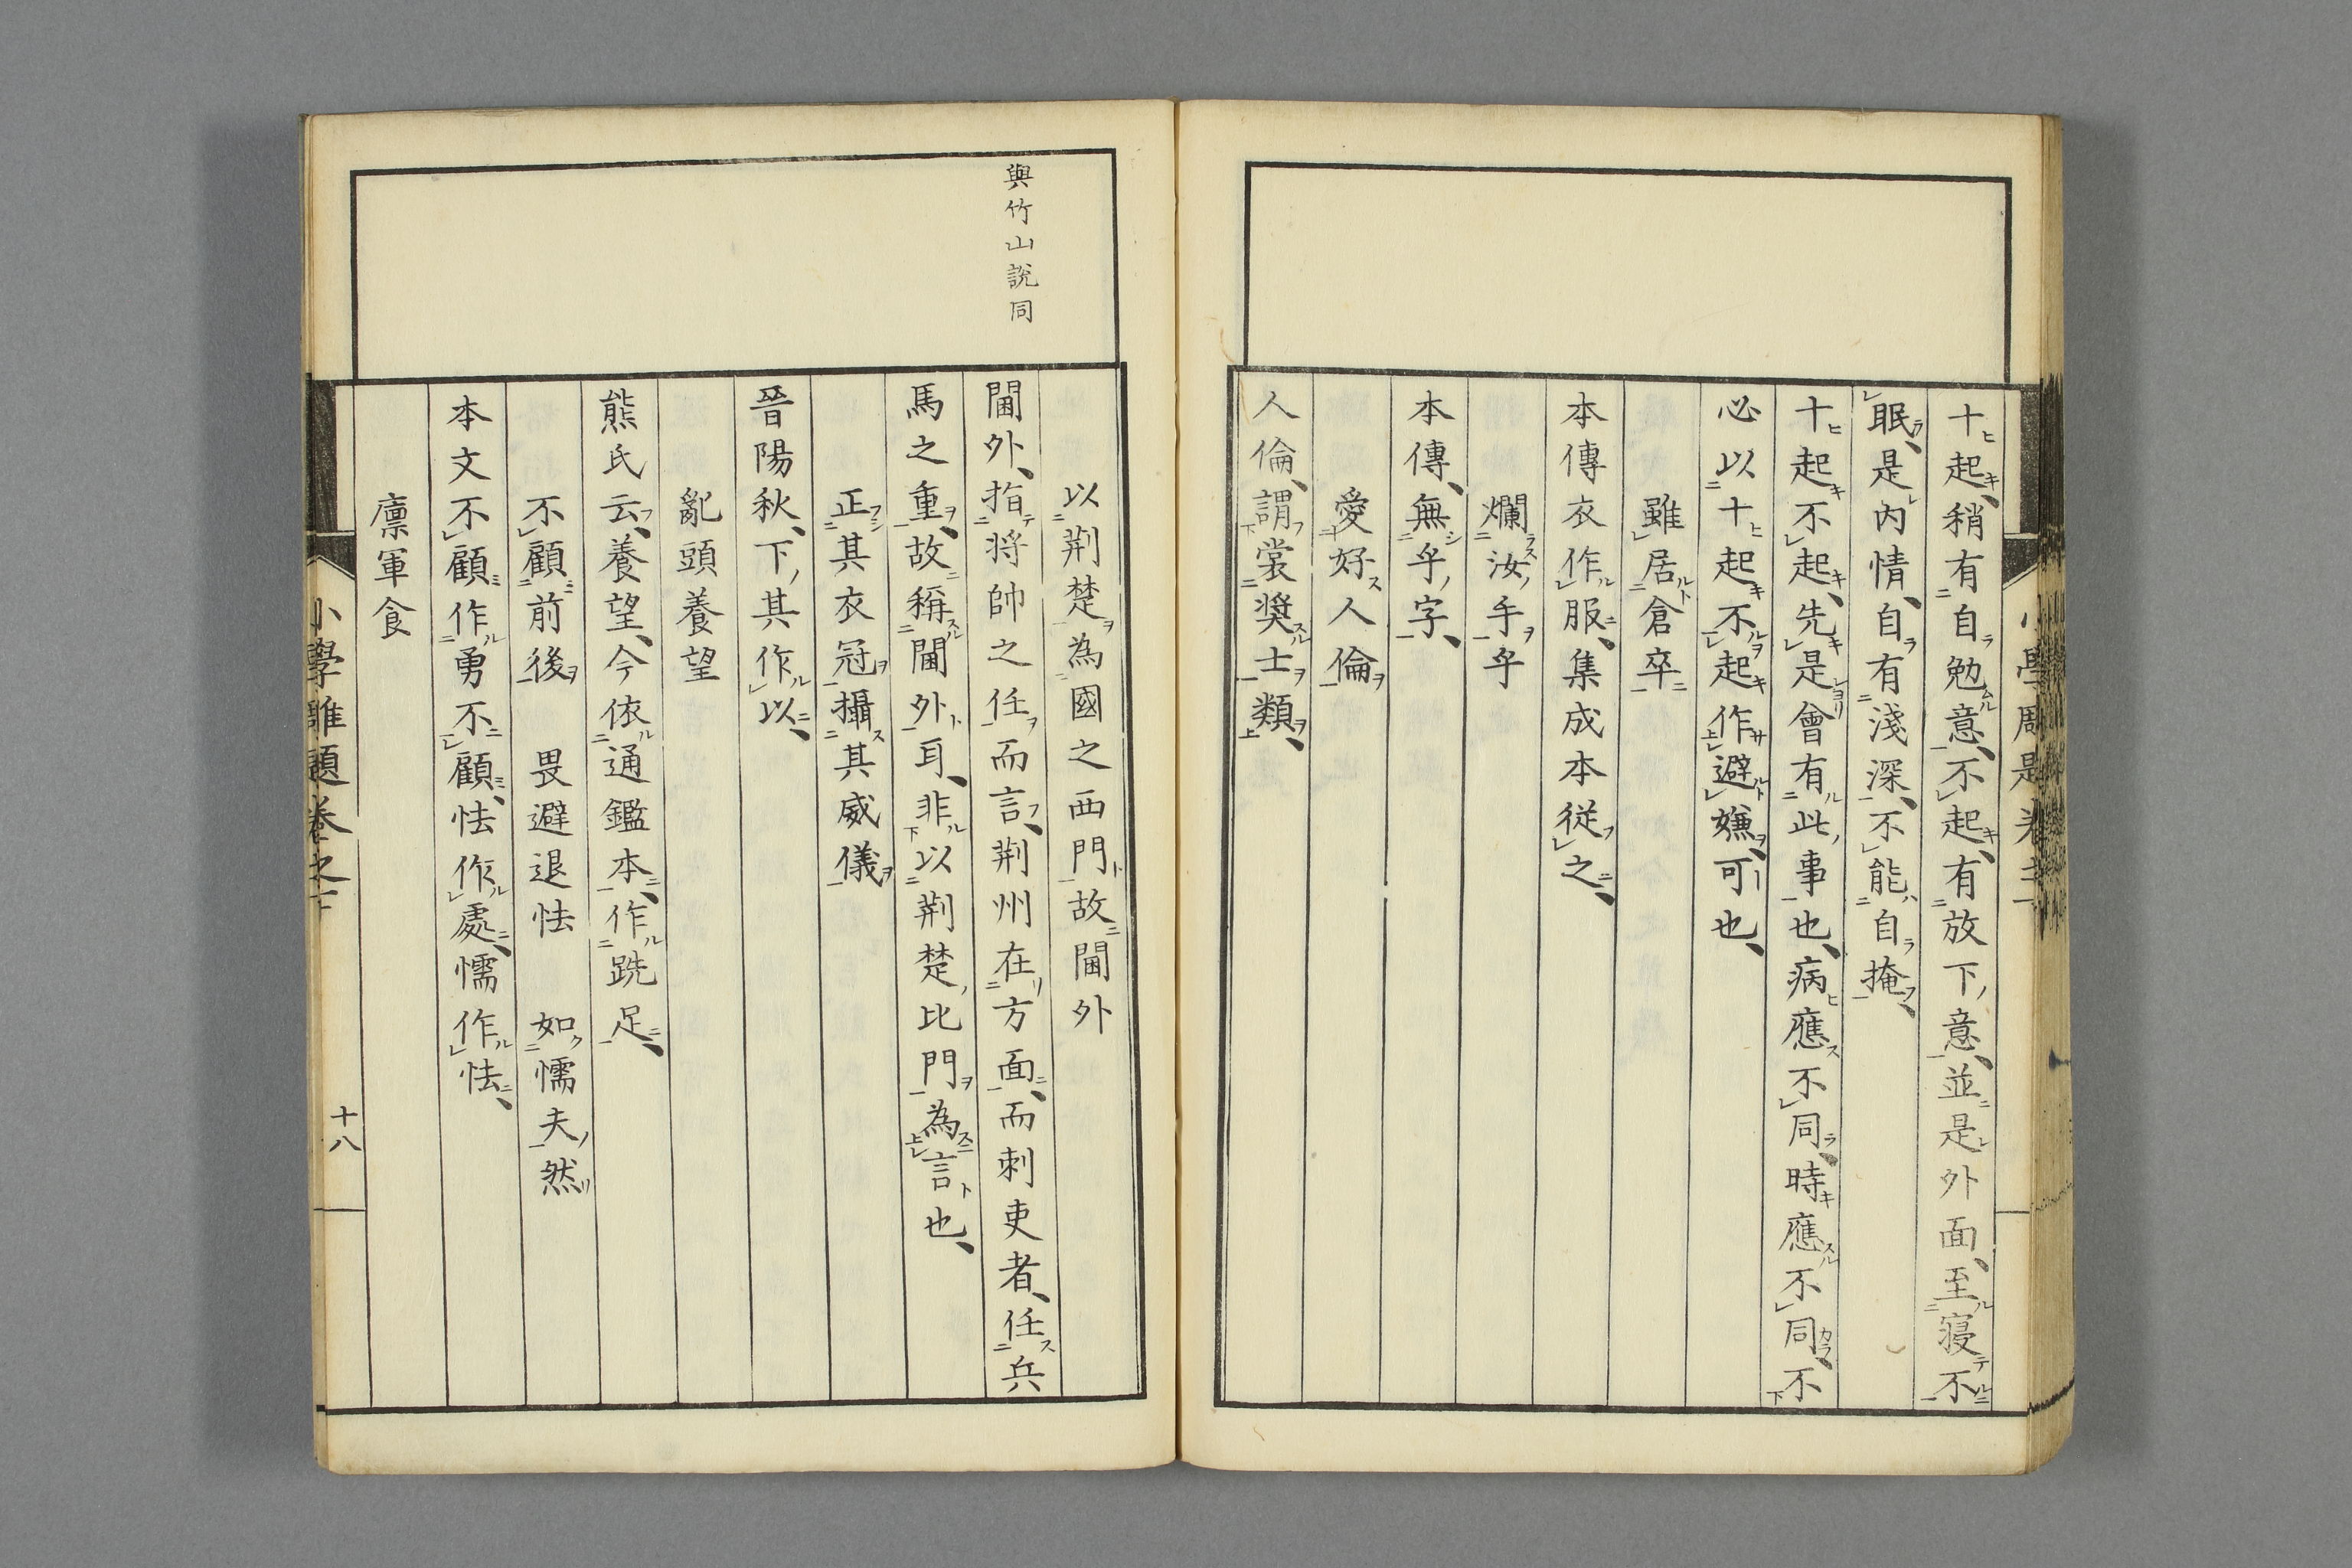 十起、稍有自勉意、不起、有放下意、並是外面、至寝不
眠、是内情、自有淺深、不能自掩、
十起不起、先是會有此事也、病應不同、時應不同、不
必以十起不起作避嫌、可也、
雖居倉卒
本傳衣作服、集成本従之、
爛汝手乎
本傳、無乎字、
愛好人倫
人倫、謂裳奬士類、
與竹山説同
以荆楚為國之西門故閫外
閫外、指将帥之任而言、荆州在方面、而刺吏者、任兵
馬之重、故稱閫外耳、非以荆楚比門為言也、
正其衣冠攝其威儀
晉陽秋、下其作以、
亂頭養望
熊氏云、養望、今依通鑑本、作跣足、
不顧前後 畏避退怯 如懦夫然
本文不顧作勇不顧、怯作處、懦作怯、
廪軍食
小學雕題卷之下
十八